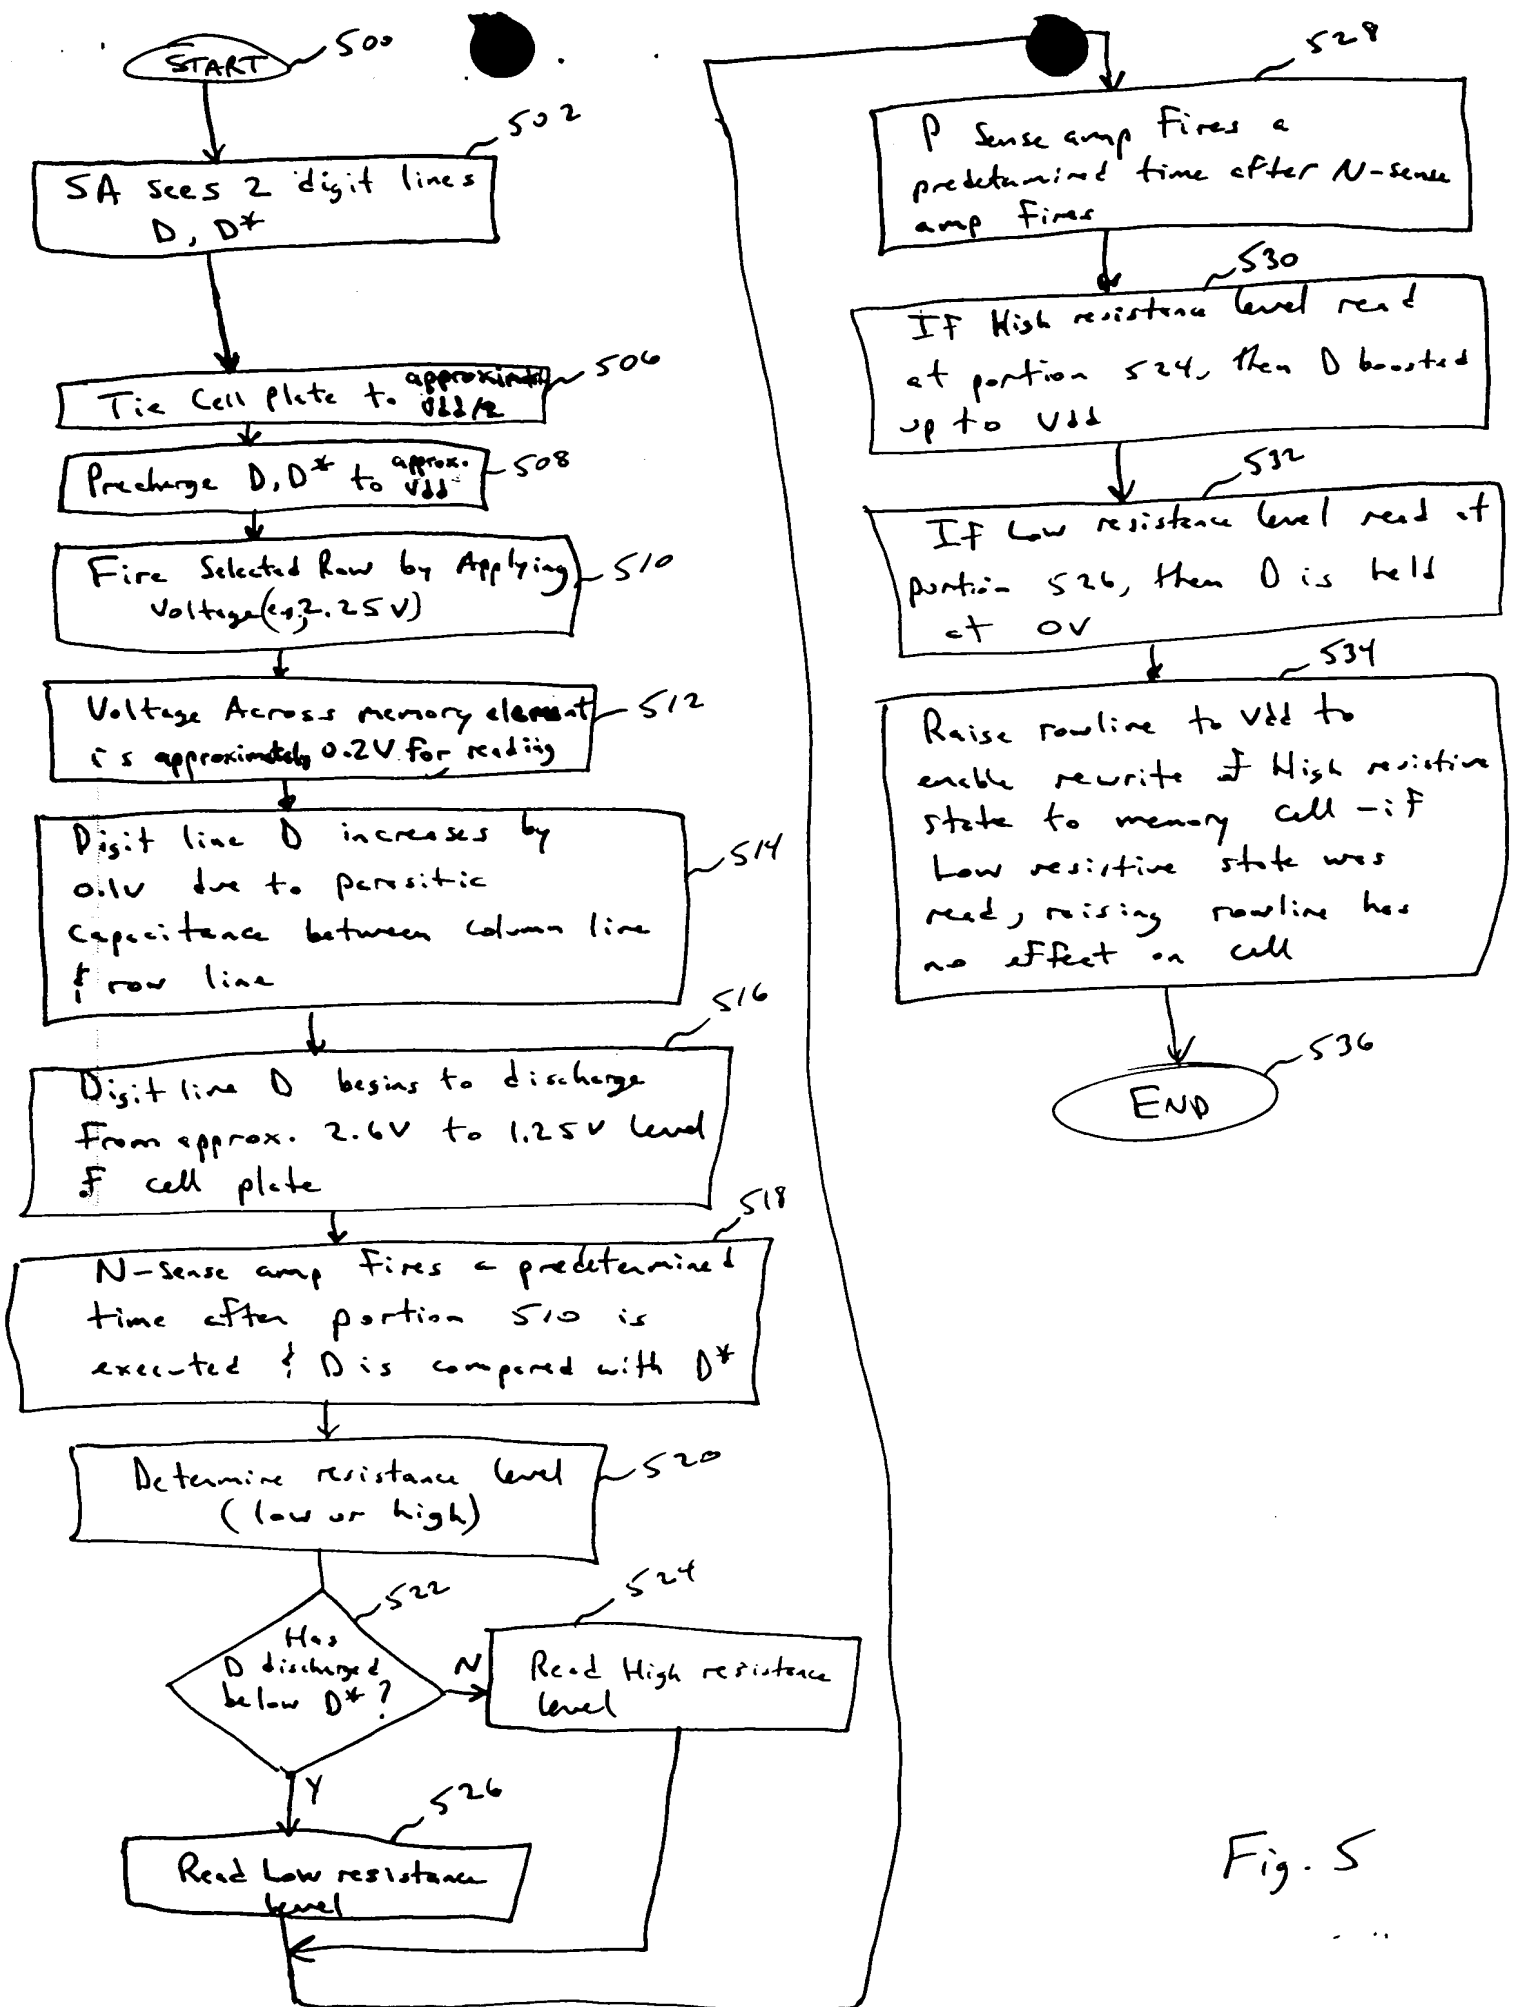 START
500
502
SA sees 2 digit lines
D, D*
506
Tie Cell plate to approximately
Vdd/2
508
Precharge D, D* to approx.
Vdd
510
Fire Selected Row by Applying
Voltage (e.g., 2.25V)
512
Voltage Across memory element
is approximately 0.2V for reading
514
Digit line D increases by
0.1V due to parasitic
capacitance between column line
& row line
516
Digit line D begins to discharge
From approx. 2.6V to 1.25V level
of cell plate
518
N-sense amp Fires a predetermined
time after portion 510 is
executed & D is compared with D*
520
Determine resistance level
(low or high)
522
Has
D discharged
below D*?
N
524
Read High resistance
level
Y
526
Read Low resistance
level
528
P sense amp Fires a
predetermined time after N-sense
amp Fires
530
IF High resistance level read
at portion 524, then D boosted
up to Vdd
532
IF Low resistance level read at
portion 526, then D is held
at 0V
534
Raise rowline to Vdd to
enable rewrite of High resistive
state to memory cell - if
Low resistive state was
read, raising rowline has
no effect on cell
536
END
Fig. 5